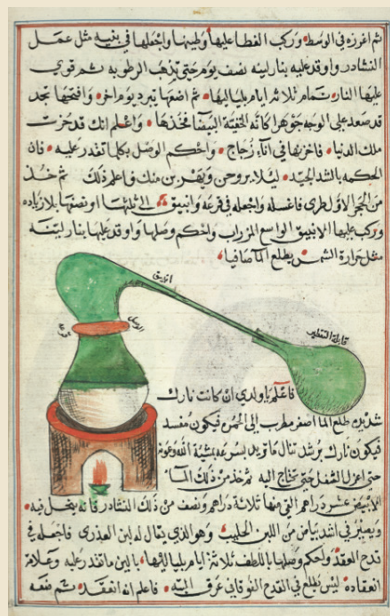 ثم اغرزه في الوسط وركب الغطا عليها وطينها واجعلها في نفيه مثل عمل
النشادر واوقد عليه بنار لينه نصف يوم حتى تذهب الرطوبه ثم قوي
عليها النار تمام ثلاثه ايام بلياليها ثم اضعها تبرد يوم اخر وافتحها تجد
قد صعد على الوجه جوهرا كانه الفضه البيضا فخذها واعلم انك قد حزت
ملك الدنيا فاخزنها في اناء زجاج واحكم الوصل بكلما تقدر عليه فان
الحكمه بالشد الجيد ليلا يروحن ويهربن منك فاعلم ذلك ثم خذ
من الحجر الاول طري فاغسله واجعله في قرعه وانبيق الى ثلثها او نصفها بلا زياده
وركب عليها الانبيق الواسع المزراب واحكم وصلها واوقد عليها بنار لينه
مثل حرارة الشمس يطلع الما صافيا
انبيق
قابلة التقطير
فاعلم يا ولدي ان كانت نارك
شديده طلع الما اصفر مطرب الى الحمره فيكون مفسد
فتكون نارك برشد تنال ما تريد بسرعه بمشية الله وعونه
حتى اعزل الثفل حتى تحتاج اليه ثم خذ من ذلك الما
الابيض عشر دراهم الق منها ثلاثة دراهم ونصف من ذلك النشادر فانه ينحل فيه
ويصير في اشد بياض من اللبن الحليب وهو الذي يقال له لبن العذرى فاجعله في
قدح العقد واحكم وصلها باللطف ثلاثة ايام بلياليها بالين ما تقدر عليه وعلامة
انعقاده ليس يطلع في القدح الفوقاني عرق البته فاعلم انه انعقد ثم ضعه